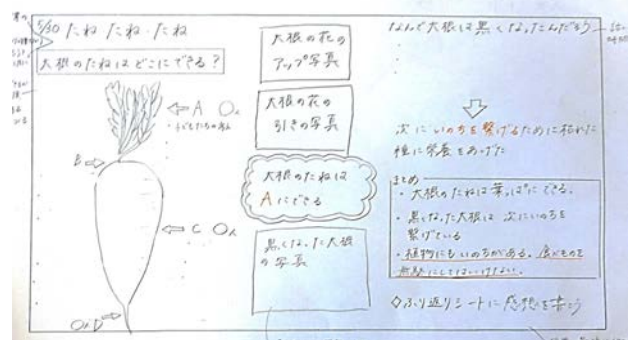 5/30 たね たね・たね
大根のたねはどこにできる?
A ○人
・子どもたちの考え
B
C ○人
D
大根の花の
アップ写真
大根の花の
引きの写真
大根のたねは
Aにできる
黒くなった大根
の写真
なんで大根は黒くなったんだろう
次にいのちを繋げるために枯れた
種に栄養をあげた
まとめ
・大根のたねは葉っぱにできる。
・黒くなった大根は 次にいのちを
繋げている
・植物にもいのちがある。食べものを
無駄にしてはいけない。
◇ふり返りシートに感想を書こう